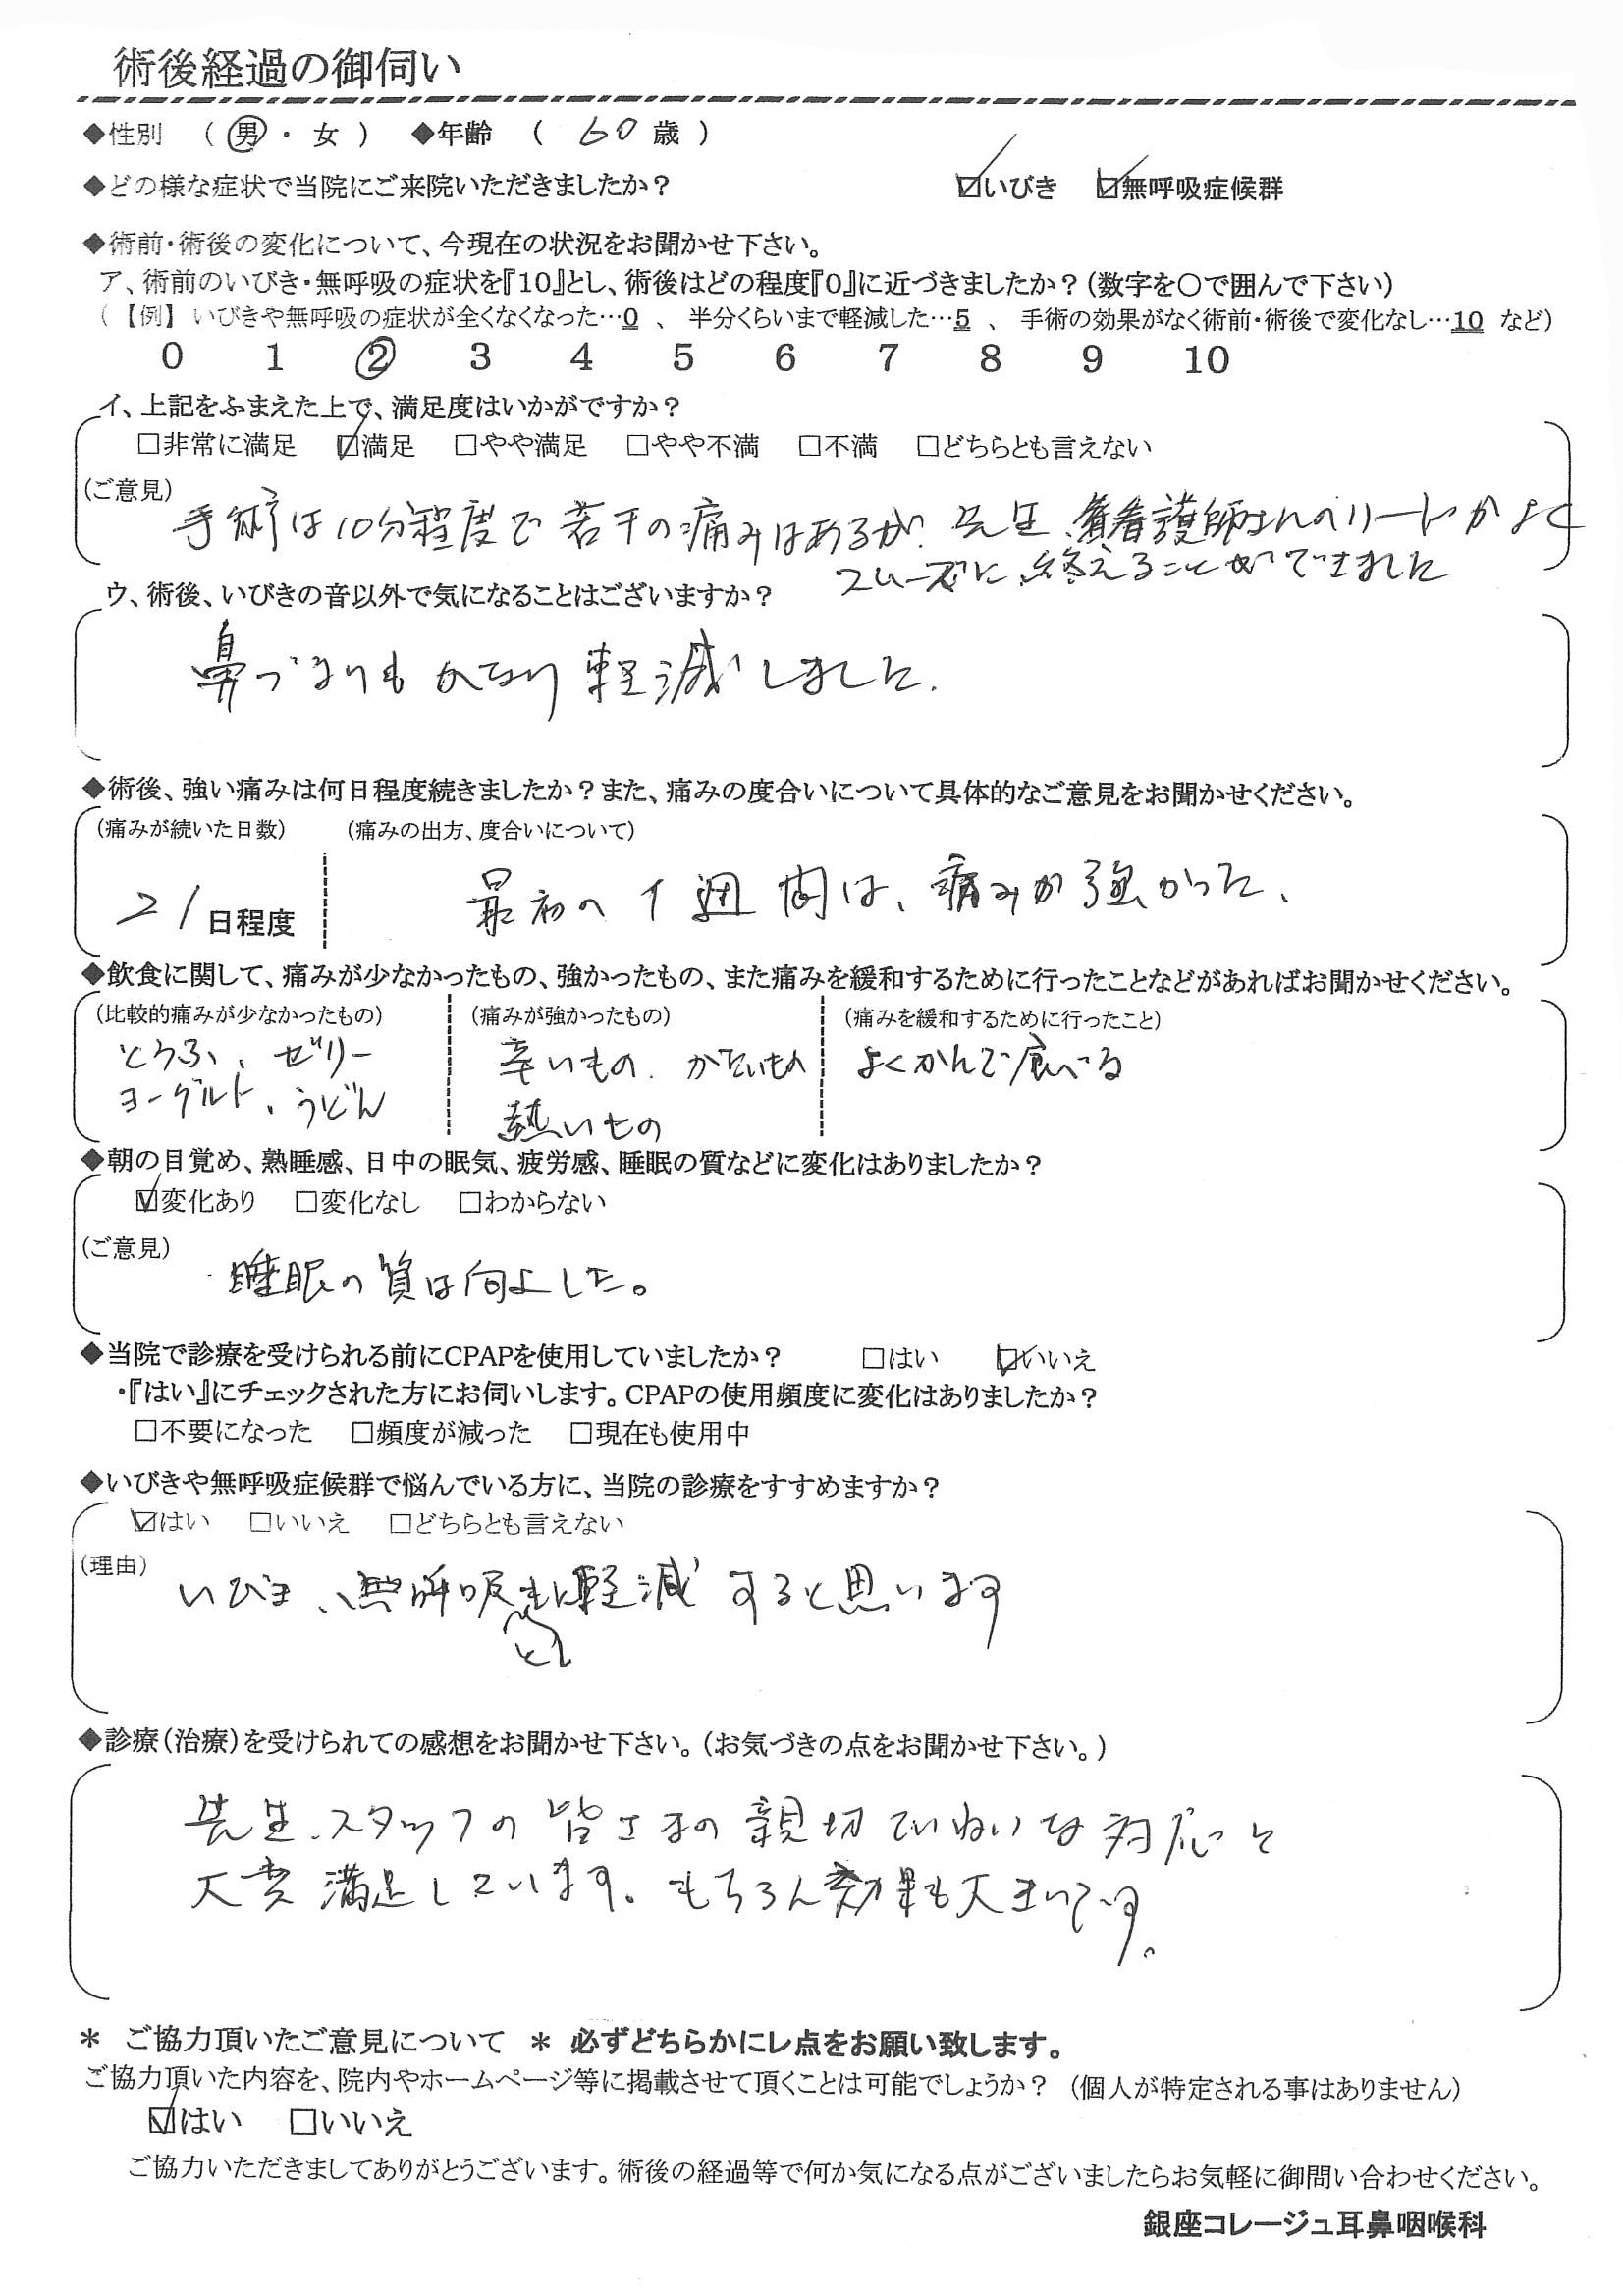 術後経過の御伺い
◆性別 （ 男 ・ 女 ） ◆年齢 （ 60 歳 ）
◆どの様な症状で当院にご来院いただきましたか？ ☑いびき ☑無呼吸症候群
◆術前・術後の変化について、今現在の状況をお聞かせ下さい。
ア、術前のいびき・無呼吸の症状を『10』とし、術後はどの程度『0』に近づきましたか？（数字を○で囲んで下さい）
（【例】 いびきや無呼吸の症状が全くなくなった…0 、 半分くらいまで軽減した…5 、 手術の効果がなく術前・術後で変化なし…10 など）
0 1 ② 3 4 5 6 7 8 9 10
イ、上記をふまえた上で、満足度はいかがですか？
□非常に満足 ☑満足 □やや満足 □やや不満 □不満 □どちらとも言えない
（ご意見）
手術は10分程度で若干の痛みはあるが、先生、看護師さんのリードがよく
スムーズに終えることができました
ウ、術後、いびきの音以外で気になることはございますか？
鼻づまりもかなり軽減しました.
◆術後、強い痛みは何日程度続きましたか？また、痛みの度合いについて具体的なご意見をお聞かせください。
（痛みが続いた日数） （痛みの出方、度合いについて）
21日程度 最初の1週間は、痛みが強かった、
◆飲食に関して、痛みが少なかったもの、強かったもの、また痛みを緩和するために行ったことなどがあればお聞かせください。
（比較的痛みが少なかったもの） （痛みが強かったもの） （痛みを緩和するために行ったこと）
とうふ、ゼリー 辛いもの、かたいもの よくかんで食べる
ヨーグルト、うどん 熱いもの
◆朝の目覚め、熟睡感、日中の眠気、疲労感、睡眠の質などに変化はありましたか？
☑変化あり □変化なし □わからない
（ご意見）
睡眠の質は向上した。
◆当院で診療を受けられる前にCPAPを使用していましたか？ □はい ☑いいえ
・『はい』にチェックされた方にお伺いします。CPAPの使用頻度に変化はありましたか？
□不要になった □頻度が減った □現在も使用中
◆いびきや無呼吸症候群で悩んでいる方に、当院の診療をすすめますか？
☑はい □いいえ □どちらとも言えない
（理由）
いびき、無呼吸とも軽減すると思います
◆診療（治療）を受けられての感想をお聞かせ下さい。（お気づきの点をお聞かせ下さい。）
先生、スタッフの皆さまの親切ていねいな対応に
大変満足しています。もちろん効果も大きいです。
＊ ご協力頂いたご意見について ＊ 必ずどちらかにレ点をお願い致します。
ご協力頂いた内容を、院内やホームページ等に掲載させて頂くことは可能でしょうか？（個人が特定される事はありません）
☑はい □いいえ
ご協力いただきましてありがとうございます。術後の経過等で何か気になる点がございましたらお気軽に御問い合わせください。
銀座コレージュ耳鼻咽喉科